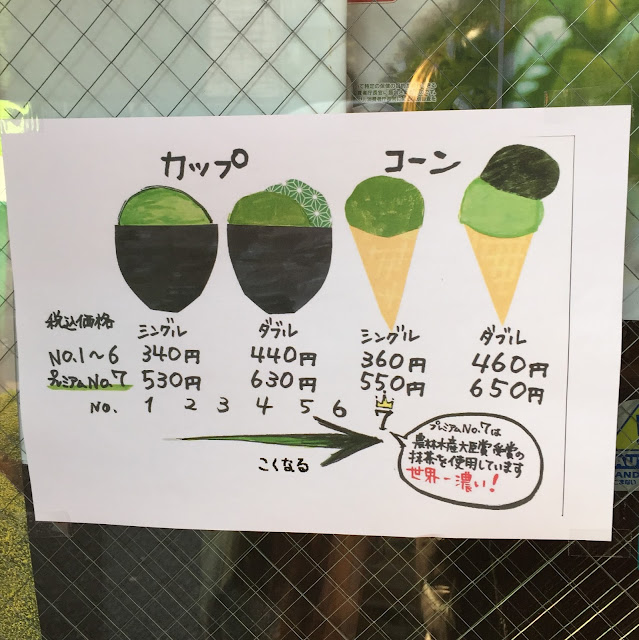 カップ コーン
税込価格 シングル ダブル シングル ダブル
No.1〜6 340円 440円 360円 460円
プレミアムNo.7 530円 630円 550円 650円
No. 1 2 3 4 5 6 7
こくなる
プレミアムNo.7は
農林水産大臣賞受賞の
抹茶を使用しています
世界一濃い!